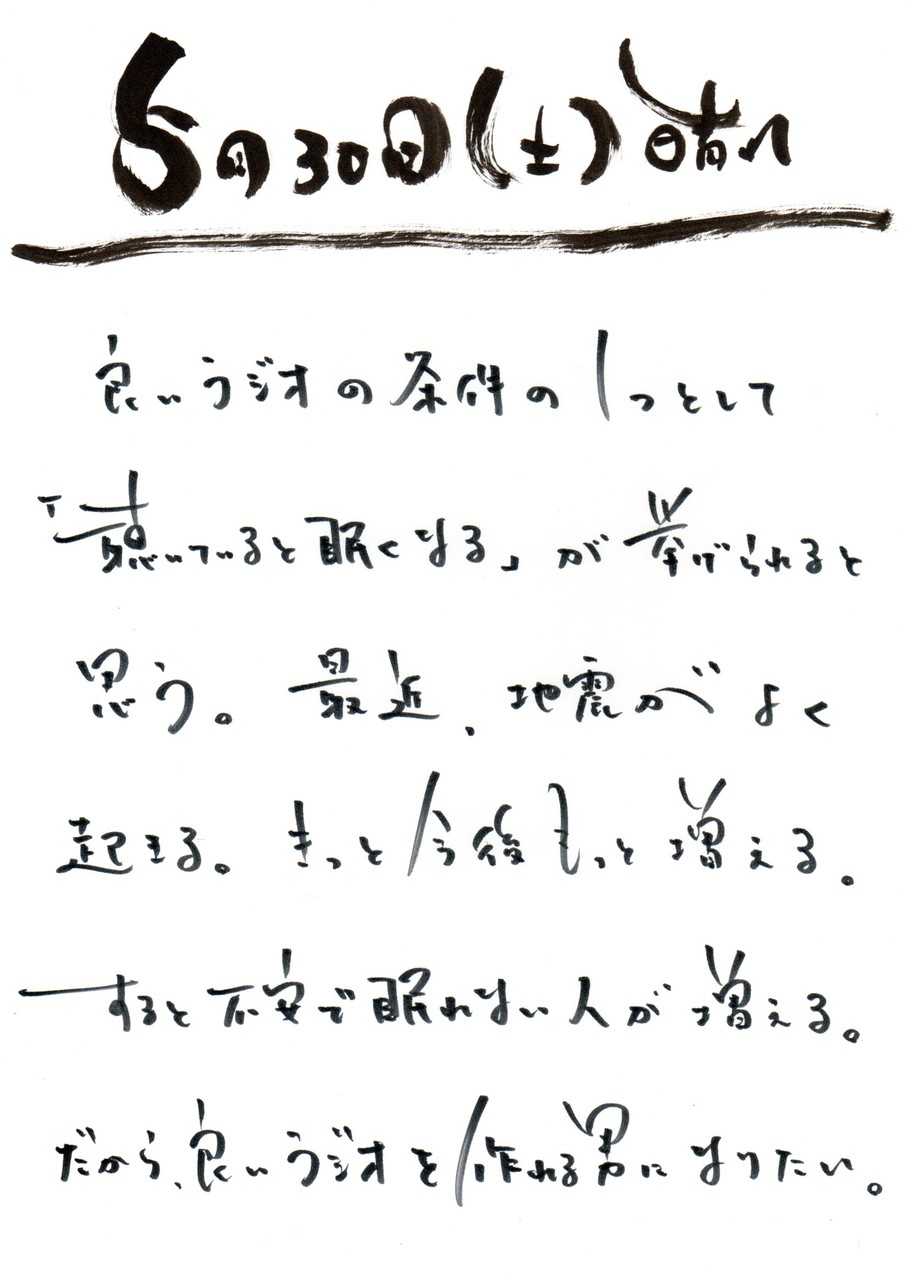 5月30日(土)晴れ
良いラジオの条件の1つとして
「聴いていると眠くなる」が挙げられると
思う。最近、地震がよく
起きる。きっと今後もっと増える。
すると不安で眠れない人が増える。
だから、良いラジオを作れる男になりたい。